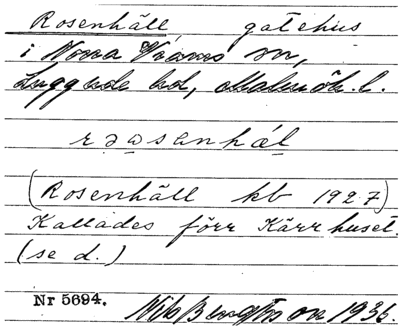 Rosenhäll gatehus
i Norra Vrams sn,
Luggude hd, Malmöh. l.
rəasenhál
(Rosenhäll kb 1927)
Kallades förr Kärrhuset.
(se d.)
Nr 5694. Nils Bengtsson 1936.